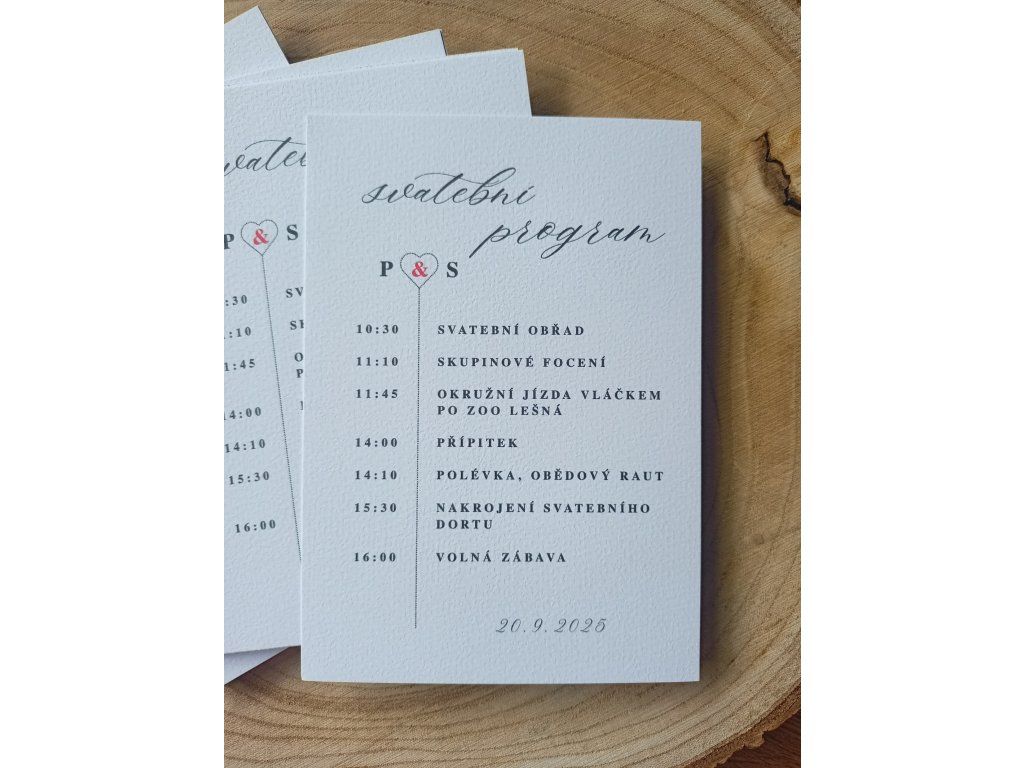 svatební
program
P & S
10:30 SVATEBNÍ OBŘAD
11:10 SKUPINOVÉ FOCENÍ
11:45 OKRUŽNÍ JÍZDA VLÁČKEM
PO ZOO LEŠNÁ
14:00 PŘÍPITEK
14:10 POLÉVKA, OBĚDOVÝ RAUT
15:30 NAKROJENÍ SVATEBNÍHO
DORTU
16:00 VOLNÁ ZÁBAVA
20.9.2025
P & S
:30 SV
:10 SK
:45 O
P
4:00
14:10
15:30
16:00